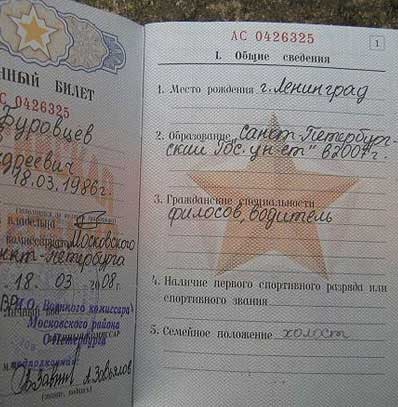 ННЫЙ БИЛЕТ
АС 0426325
Фуровцев
дреевич
18.03.1986г.
владельца
комиссариатом Московского
нкт-петербурга
18 03 2008г.
И.О. Военного комиссара
Московского района
С-Петербурга
подполковник
А.Завьялов
АС 0426325
1
I. Общие сведения
1. Место рождения г. Ленинград
2. Образование „Санкт-Петербург-
ский Гос. ун-ет" в 2007г.
3. Гражданские специальности
философ, водитель
4. Наличие первого спортивного разряда или
спортивного звания
5. Семейное положение холост